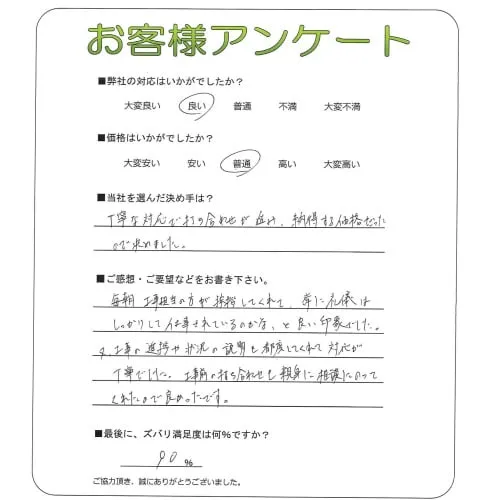 お客様アンケート
■弊社の対応はいかがでしたか？
大変良い 良い 普通 不満 大変不満
■価格はいかがでしたか？
大変安い 安い 普通 高い 大変高い
■当社を選んだ決め手は？
丁寧な対応で打ち合わせが進み、納得する価格だった
ので決めました。
■ご感想・ご要望などをお書き下さい。
毎朝、工事担当の方が挨拶してくれて、常に礼儀は
しっかりして仕事されているのかな、と良い印象でした。
又、工事の進捗や状況の説明も都度してくれて対応が
丁寧でした。工事前の打ち合わせも親身に相談にのって
くれたので良かったです。
■最後に、ズバリ満足度は何%ですか？
90 %
ご協力頂き、誠にありがとうございました。